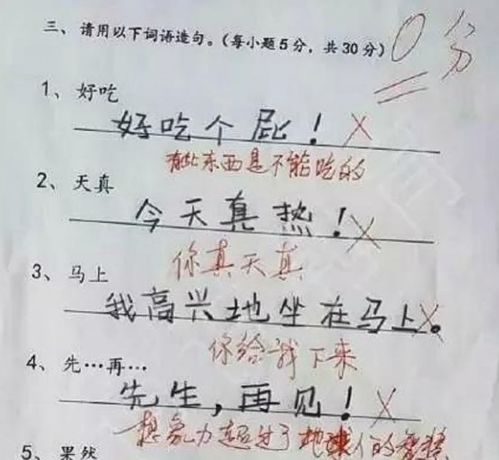 三、请用以下词语造句。(每小题5分,共30分) 0分
1、好吃
好吃个屁!
有些东西是不能吃的
2、天真
今天真热!
你真天真
3、马上
我高兴地坐在马上。
你给我下来
4、先…再…
先生,再见!
想象力超过了地球人的智慧
5、果然